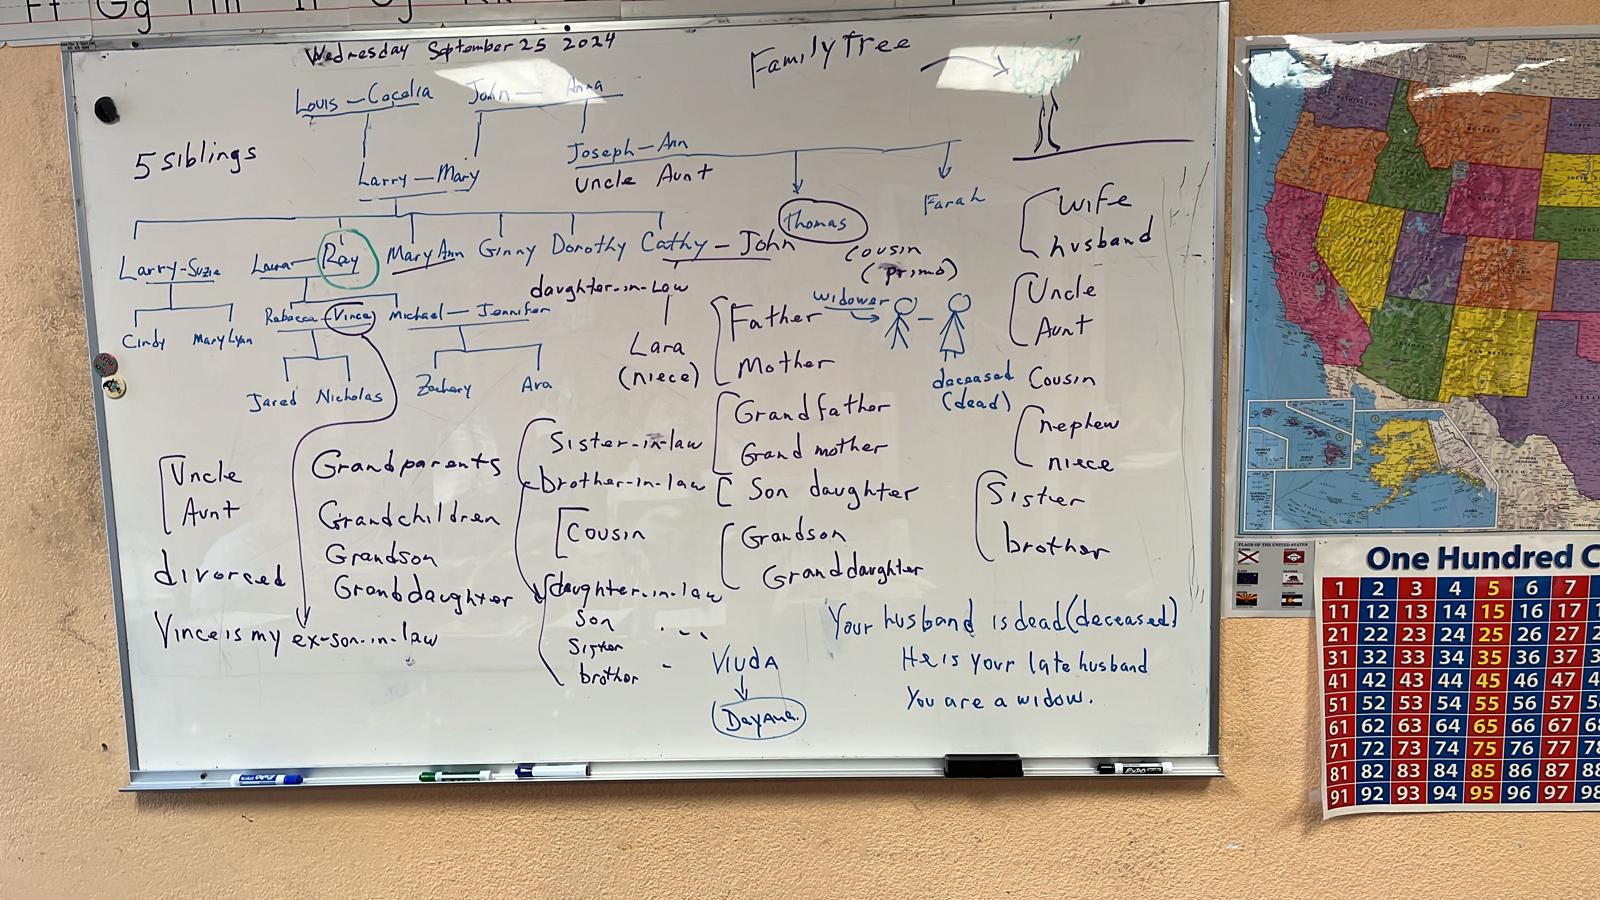 Ff Gg
Wednesday September 25 2024
Family Tree
Louis — Cecelia
John — Anna
5 siblings
Larry — Mary
Joseph — Ann
Uncle Aunt
Thomas
Farah
Larry - Suzie
Laura — Ray
Mary Ann
Ginny
Dorothy
Cathy — John
Cousin
(primo)
Cindy
Mary Lynn
Rebecca - Vince
Michael — Jennifer
Jared
Nicholas
Zachary
Ava
daughter-in-law
Lara
(niece)
Father
Mother
widower
deceased
(dead)
wife
husband
Uncle
Aunt
Cousin
nephew
niece
Sister
brother
Uncle
Aunt
divorced
Vince is my ex-son-in-law
Grandparents
Grandchildren
Grandson
Granddaughter
Sister-in-law
brother-in-law
Cousin
daughter-in-law
Son
Sister
brother
Grandfather
Grand mother
Son daughter
Grandson
Granddaughter
Viuda
Dayana.
Your husband is dead (deceased)
He is your late husband
You are a widow.
EXPO
FLAGS OF THE UNITED STATES
One Hundred C
1 2 3 4 5 6 7
11 12 13 14 15 16 17
21 22 23 24 25 26 27
31 32 33 34 35 36 37
41 42 43 44 45 46 47
51 52 53 54 55 56 57
61 62 63 64 65 66 67
71 72 73 74 75 76 77
81 82 83 84 85 86 87
91 92 93 94 95 96 97 98